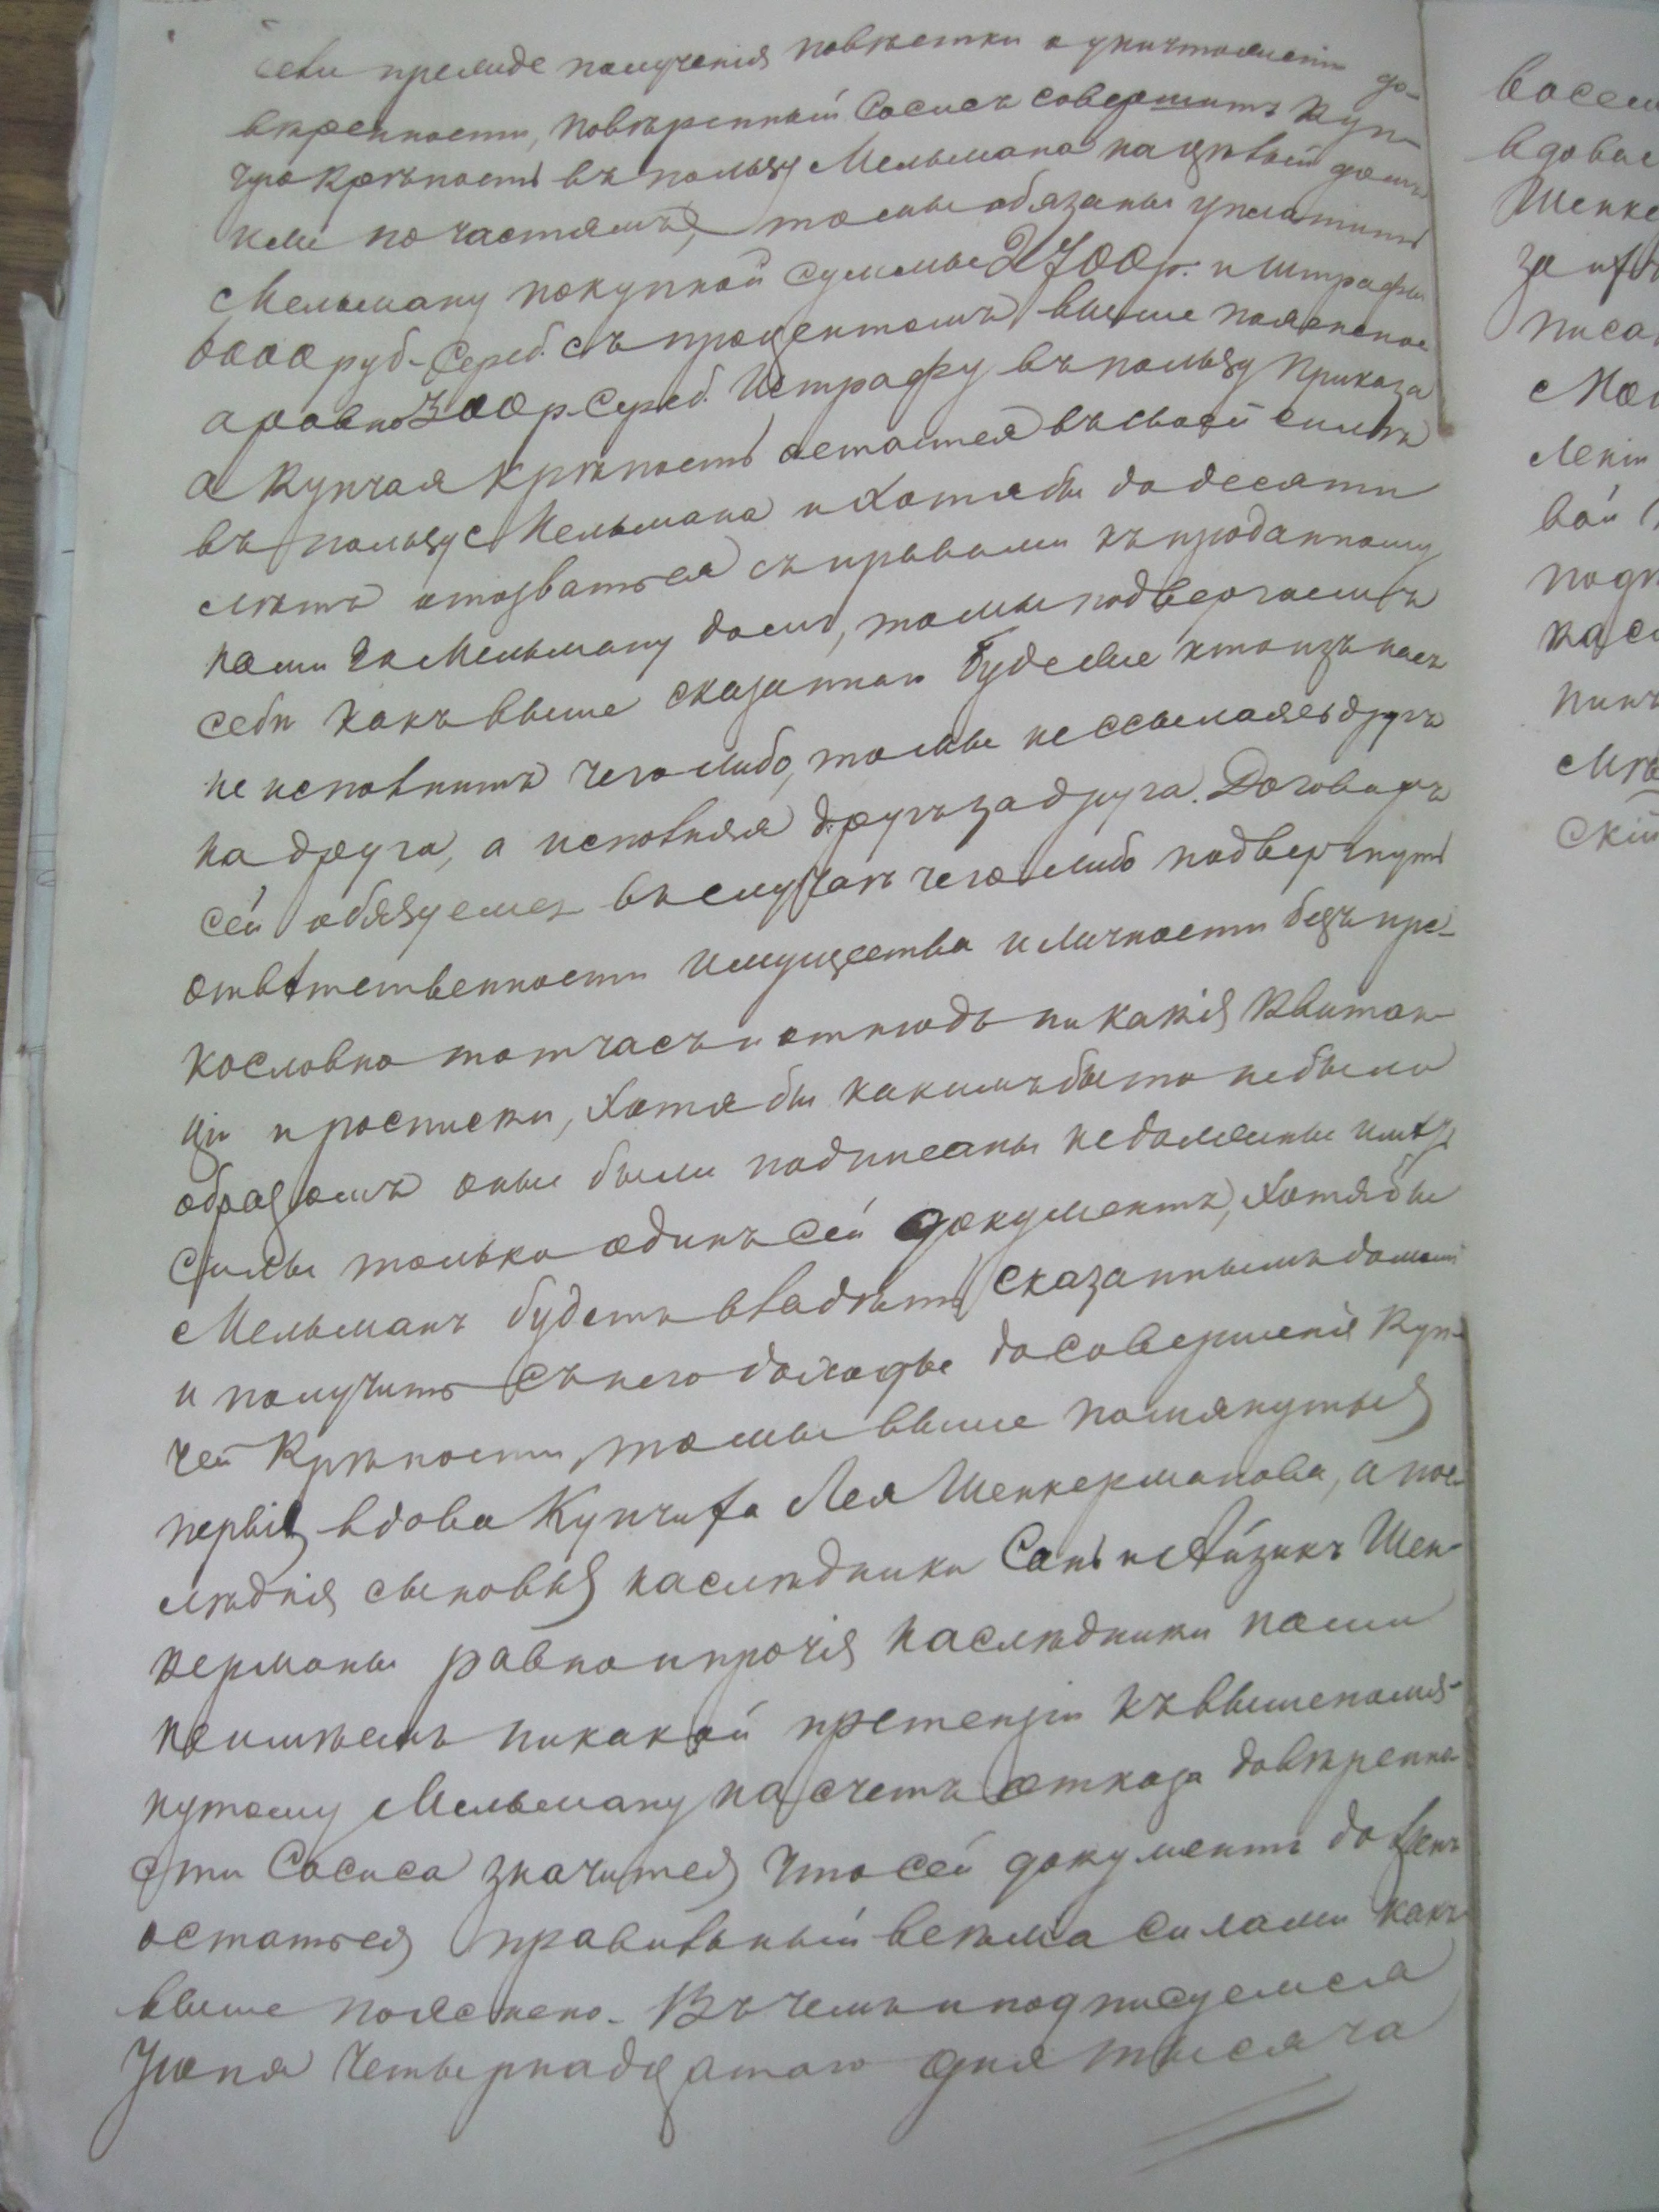 если прежде полученія повѣстки о уничтоженіи до-
вѣренности, повѣренный Сосисъ совершитъ Куп-
чую крѣпость въ пользу Мельмана на цѣлый домъ
или по частямъ, то мы обязаны уплатить
Мельману покупной суммы 2700 р. и штрафъ
6000 руб. Сереб. съ процентомъ выше поясненое
а равно 300 р. Сереб. Штрафу въ пользу Приказа
а Купчая Крѣпость остается въ своей силѣ
въ пользу Мельмана и хотя бы до десяти
лѣтъ отозваться съ правами къ проданному
нами Го Мельману дому, то мы подвергаемъ
себя какъ выше сказанное Будеже ктоизъ насъ
не исполнитъ чего либо, то мы не ссылаясь другъ
на друга, а исполняя другъ за друга. Договоръ
сей обязуемся въ случаѣ чего либо подвергнуть
отвѣтственности имущества и личности безъ пре-
кословно тотчасъ и отнюдь никакія Квитан-
ціи и росписки, хотя бы какимъ бы то небыло
образомъ оные были подписаны не должны имѣть
силы только одинъ сей документъ, хотя бы
Мельманъ будетъ владѣть сказаннымъ домомъ
и получить съ него доходы до совершенія Куп-
чей Крѣпости, то мы выше помянутыя
первыя вдова Купчиха Лея Шенкерманова, а пос-
лѣднія сыновья наслѣдники Сань и Айзикъ Шен-
керманы равно и прочія наслѣдники наши
неимѣемъ никакой претензіи къ вышепомя-
нутому Мельману на счетъ отказа довѣренно
сти Сосиса значится что сей документъ долженъ
остаться правильный всѣма силами какъ
выше пояснено. Въ чемъ и подписуемся
Іюня четырнадцатого дня тысяча
восем
вдова
Шенке
за
писа
Мел
лені
вой
подп
кас
никъ
скій